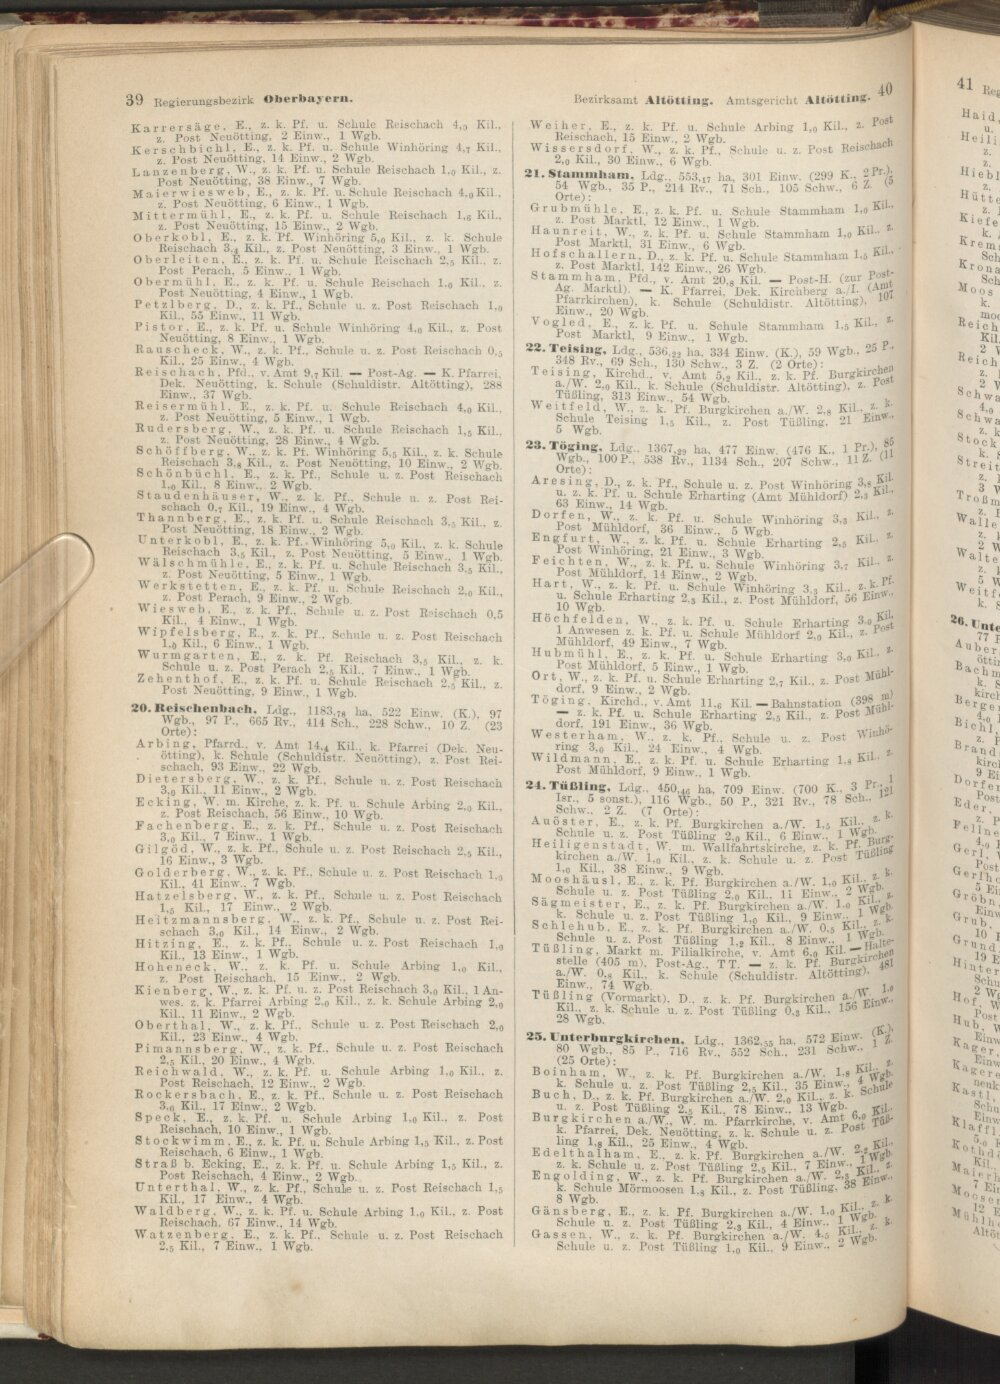 39 Regierungsbezirk Oberbayern.
Karrersäge, E., z. k. Pf. u. Schule Reischach 4,0 Kil.,
z. Post Neuötting, 2 Einw., 1 Wgb.
Kerschbichl, E., z. k. Pf. u. Schule Winhöring 4,7 Kil.,
z. Post Neuötting, 14 Einw., 2 Wgb.
Lanzenberg, W., z. k. Pf. u. Schule Reischach 1,0 Kil., z.
Post Neuötting, 38 Einw., 7 Wgb.
Maierwiesweb, E., z. k. Pf. u. Schule Reischach 4,0 Kil.,
z. Post Neuötting, 6 Einw., 1 Wgb.
Mittermühl, E., z. k. Pf. u. Schule Reischach 1,6 Kil.,
z. Post Neuötting, 15 Einw., 2 Wgb.
Oberkobl, E., z. k. Pf. Winhöring 5,0 Kil., z. k. Schule
Reischach 3,4 Kil., z. Post Neuötting, 3 Einw., 1 Wgb.
Oberleiten, E., z. k. Pf. u. Schule Reischach 2,5 Kil., z.
Post Perach, 5 Einw., 1 Wgb.
Obermühl, E., z. k. Pf. u. Schule Reischach 1,0 Kil., z.
Post Neuötting, 4 Einw., 1 Wgb.
Petzlberg, D., z. k. Pf., Schule u. z. Post Reischach 1,0
Kil., 55 Einw., 11 Wgb.
Pistor, E., z. k. Pf. u. Schule Winhöring 4,0 Kil., z. Post
Neuötting, 8 Einw., 1 Wgb.
Rauscheck, W., z. k. Pf., Schule u. z. Post Reischach 0,5
Kil., 25 Einw., 4 Wgb.
Reischach, Pfd., v. Amt 9,7 Kil. — Post-Ag. — K. Pfarrei,
Dek. Neuötting, k. Schule (Schuldistr. Altötting), 288
Einw., 37 Wgb.
Reisermühl, E., z. k. Pf. u. Schule Reischach 4,0 Kil.,
z. Post Neuötting, 5 Einw., 1 Wgb.
Rudersberg, W., z. k. Pf. u. Schule Reischach 1,5 Kil.,
z. Post Neuötting, 28 Einw., 4 Wgb.
Schöffberg, W., z. k. Pf. Winhöring 5,5 Kil., z. k. Schule
Reischach 3,8 Kil., z. Post Neuötting, 10 Einw., 2 Wgb.
Schönbüchl, E., z. k. Pf., Schule u. z. Post Reischach
1,0 Kil., 8 Einw., 2 Wgb.
Staudenhäuser, W., z. k. Pf., Schule u. z. Post Rei-
schach 0,7 Kil., 19 Einw., 4 Wgb.
Thannberg, E., z. k. Pf. u. Schule Reischach 3,5 Kil., z.
Post Neuötting, 18 Einw., 2 Wgb.
Unterkobl, E., z. k. Pf. Winhöring 5,0 Kil., z. k. Schule
Reischach 3,5 Kil., z. Post Neuötting, 5 Einw., 1 Wgb.
Wälschmühle, E., z. k. Pf. u. Schule Reischach 3,5 Kil.,
z. Post Neuötting, 5 Einw., 1 Wgb.
Werkstetten, E., z. k. Pf. u. Schule Reischach 2,0 Kil.,
z. Post Perach, 9 Einw., 2 Wgb.
Wiesweb, E., z. k. Pf., Schule u. z. Post Reischach 0,5
Kil., 4 Einw., 1 Wgb.
Wipfelsberg, E., z. k. Pf., Schule u. z. Post Reischach
1,0 Kil., 6 Einw., 1 Wgb.
Wurmgarten, E., z. k. Pf. Reischach 3,5 Kil., z. k.
Schule u. z. Post Perach 2,5 Kil., 7 Einw., 1 Wgb.
Zehenthof, E., z. k. Pf. u. Schule Reischach 2,5 Kil., z.
Post Neuötting, 9 Einw., 1 Wgb.
20. Reischenbach, Ldg., 1183,78 ha, 522 Einw. (K.), 97
Wgb., 97 P., 665 Rv., 414 Sch., 228 Schw., 10 Z. (23
Orte):
Arbing, Pfarrd., v. Amt 14,4 Kil., k. Pfarrei (Dek. Neu-
ötting), k. Schule (Schuldistr. Neuötting), z. Post Rei-
schach, 93 Einw., 22 Wgb.
Dietersberg, W., z. k. Pf., Schule u. z. Post Reischach
3,0 Kil., 11 Einw., 2 Wgb.
Ecking, W. m. Kirche, z. k. Pf. u. Schule Arbing 2,0 Kil.,
z. Post Reischach, 56 Einw., 10 Wgb.
Fachenberg, E., z. k. Pf., Schule u. z. Post Reischach
3,0 Kil., 7 Einw., 1 Wgb.
Gilgöd, W., z. k. Pf., Schule u. z. Post Reischach 2,5 Kil.,
16 Einw., 3 Wgb.
Golderberg, W., z. k. Pf., Schule u. z. Post Reischach 1,0
Kil., 41 Einw., 7 Wgb.
Hatzelsberg, W., z. k. Pf., Schule u. z. Post Reischach
1,5 Kil., 17 Einw., 2 Wgb.
Heitzmannsberg, W., z. k. Pf., Schule u. z. Post Rei-
schach 3,0 Kil., 14 Einw., 2 Wgb.
Hitzing, E., z. k. Pf., Schule u. z. Post Reischach 1,0
Kil., 13 Einw., 1 Wgb.
Hoheneck, W., z. k. Pf. u. Schule Arbing 1,0 Kil.,
z. Post Reischach, 15 Einw., 2 Wgb.
Kienberg, W., z. k. Pf. u. z. Post Reischach 3,0 Kil., 1 An-
wes. z. k. Pfarrei Arbing 2,0 Kil., z. k. Schule Arbing 2,0
Kil., 11 Einw., 2 Wgb.
Oberthal, W., z. k. Pf., Schule u. z. Post Reischach 2,0
Kil., 23 Einw., 4 Wgb.
Pimannsberg, W., z. k. Pf., Schule u. z. Post Reischach
2,5 Kil., 20 Einw., 4 Wgb.
Reichwald, W., z. k. Pf. u. Schule Arbing 1,0 Kil., z.
Post Reischach, 12 Einw., 2 Wgb.
Rockersbach, E., z. k. Pf., Schule u. z. Post Reischach
3,0 Kil., 17 Einw., 2 Wgb.
Speck, E., z. k. Pf. u. Schule Arbing 1,0 Kil., z. Post
Reischach, 10 Einw., 1 Wgb.
Stockwimm, E., z. k. Pf. u. Schule Arbing 1,5 Kil., z. Post
Reischach, 6 Einw., 1 Wgb.
Straß b. Ecking, E., z. k. Pf. u. Schule Arbing 1,5 Kil., z.
Post Reischach, 4 Einw., 2 Wgb.
Unterthal, W., z. k. Pf., Schule u. z. Post Reischach 1,5
Kil., 17 Einw., 4 Wgb.
Waldberg, W., z. k. Pf. u. Schule Arbing 1,0 Kil., z. Post
Reischach, 67 Einw., 14 Wgb.
Watzenberg, E., z. k. Pf., Schule u. z. Post Reischach
2,5 Kil., 7 Einw., 1 Wgb.
Bezirksamt Altötting. Amtsgericht Altötting. 40
Weiher, E., z. k. Pf. u. Schule Arbing 1,0 Kil., z. Post
Reischach, 15 Einw., 2 Wgb.
Wissersdorf, W., z. k. Pf., Schule u. z. Post Reischach
2,0 Kil., 30 Einw., 6 Wgb.
21. Stammham, Ldg., 553,17 ha, 301 Einw. (299 K., 2 Pr.),
54 Wgb., 35 P., 214 Rv., 71 Sch., 105 Schw., 6 Z. (5
Orte):
Grubmühle, E., z. k. Pf. u. Schule Stammham 1,0 Kil.,
z. Post Marktl, 12 Einw., 1 Wgb.
Haunreit, W., z. k. Pf. u. Schule Stammham 1,0 Kil., z.
Post Marktl, 31 Einw., 6 Wgb.
Hofschallern, D., z. k. Pf. u. Schule Stammham 1,5 Kil.,
z. Post Marktl, 142 Einw., 26 Wgb.
Stammham, Pfd., v. Amt 20,8 Kil. — Post-H. (zur Post-
Ag. Marktl). — K. Pfarrei, Dek. Kirchberg a./I. (Amt
Pfarrkirchen), k. Schule (Schuldistr. Altötting), 107
Einw., 20 Wgb.
Vogled, E., z. k. Pf. u. Schule Stammham 1,5 Kil., z.
Post Marktl, 9 Einw., 1 Wgb.
22. Teising, Ldg., 536,22 ha, 334 Einw. (K.), 59 Wgb., 25 P.,
348 Rv., 69 Sch., 130 Schw., 3 Z. (2 Orte):
Teising, Kirchd., v. Amt 5,2 Kil., z. k. Pf. Burgkirchen
a./W. 2,0 Kil., k. Schule (Schuldistr. Altötting), z. Post
Tüßling, 313 Einw., 54 Wgb.
Weitfeld, W., z. k. Pf. Burgkirchen a./W. 2,8 Kil., z. k.
Schule Teising 1,5 Kil., z. Post Tüßling, 21 Einw.,
5 Wgb.
23. Töging, Ldg., 1367,29 ha, 477 Einw. (476 K., 1 Pr.), 85
Wgb., 100 P., 538 Rv., 1134 Sch., 207 Schw., 11 Z. (11
Orte):
Aresing, D., z. k. Pf., Schule u. z. Post Winhöring 3,8 Kil.
u. z. k. Pf. u. Schule Erharting (Amt Mühldorf) 2,3 Kil.,
63 Einw., 14 Wgb.
Dorfen, W., z. k. Pf. u. Schule Winhöring 3,3 Kil., z.
Post Mühldorf, 36 Einw., 5 Wgb.
Engfurt, W., z. k. Pf. u. Schule Erharting 2,5 Kil., z.
Post Winhöring, 21 Einw., 3 Wgb.
Feichten, W., z. k. Pf. u. Schule Winhöring 3,7 Kil., z.
Post Mühldorf, 14 Einw., 2 Wgb.
Hart, W., z. k. Pf. u. Schule Winhöring 3,3 Kil., z. k. Pf.
u. Schule Erharting 2,3 Kil., z. Post Mühldorf, 56 Einw.,
10 Wgb.
Höchfelden, W., z. k. Pf. u. Schule Erharting 3,0 Kil.,
1 Anwesen z. k. Pf. u. Schule Mühldorf 2,0 Kil., z. Post
Mühldorf, 49 Einw., 7 Wgb.
Hubmühl, E., z. k. Pf. u. Schule Erharting 3,0 Kil., z.
Post Mühldorf, 5 Einw., 1 Wgb.
Ort, W., z. k. Pf. u. Schule Erharting 2,7 Kil., z. Post Mühl-
dorf, 9 Einw., 2 Wgb.
Töging, Kirchd., v. Amt 11,6 Kil. — Bahnstation (398 m)
— z. k. Pf. u. Schule Erharting 2,5 Kil., z. Post Mühl-
dorf, 191 Einw., 36 Wgb.
Westerham, W., z. k. Pf., Schule u. z. Post Winhö-
ring 3,0 Kil., 24 Einw., 4 Wgb.
Wildmann, E., z. k. Pf. u. Schule Erharting 1,8 Kil., z.
Post Mühldorf, 9 Einw., 1 Wgb.
24. Tüßling, Ldg., 450,46 ha, 709 Einw. (700 K., 3 Pr., 1
Isr., 5 sonst.), 116 Wgb., 50 P., 321 Rv., 78 Sch., 121
Schw., 2 Z. (7 Orte):
Auöster, E., z. k. Pf. Burgkirchen a./W. 1,5 Kil., z. k.
Schule u. z. Post Tüßling 2,0 Kil., 6 Einw., 1 Wgb.
Heiligenstadt, W. m. Wallfahrtskirche, z. k. Pf. Burg-
kirchen a./W. 1,0 Kil., z. k. Schule u. z. Post Tüßling
1,0 Kil., 38 Einw., 9 Wgb.
Mooshäusl, E., z. k. Pf. Burgkirchen a./W. 1,0 Kil., z. k.
Schule u. z. Post Tüßling 2,0 Kil., 11 Einw., 2 Wgb.
Sägmeister, E., z. k. Pf. Burgkirchen a./W. 1,0 Kil., z.
k. Schule u. z. Post Tüßling 1,0 Kil., 9 Einw., 1 Wgb.
Schlehub, E., z. k. Pf. Burgkirchen a./W. 0,5 Kil., z. k.
Schule u. z. Post Tüßling 1,2 Kil., 8 Einw., 1 Wgb.
Tüßling, Markt m. Filialkirche, v. Amt 6,0 Kil. — Halte-
stelle (405 m), Post-Ag., TT. — z. k. Pf. Burgkirchen
a./W. 0,8 Kil., k. Schule (Schuldistr. Altötting), 481
Einw., 74 Wgb.
Tüßling (Vormarkt), D., z. k. Pf. Burgkirchen a./W. 1,0
Kil., z. k. Schule u. z. Post Tüßling 0,3 Kil., 156 Einw.,
28 Wgb.
25. Unterburgkirchen, Ldg., 1362,55 ha, 572 Einw. (K.),
80 Wgb., 85 P., 716 Rv., 552 Sch., 231 Schw., 1 Z.
(25 Orte):
Boinham, W., z. k. Pf. Burgkirchen a./W. 1,8 Kil., z.
k. Schule u. z. Post Tüßling 2,5 Kil., 35 Einw., 4 Wgb.
Buch, D., z. k. Pf. Burgkirchen a./W. 2,0 Kil., z. k. Schule
u. z. Post Tüßling 2,5 Kil., 78 Einw., 13 Wgb.
Burgkirchen a./W., W. m. Pfarrkirche, v. Amt 6,0 Kil.,
k. Pfarrei, Dek. Neuötting, z. k. Schule u. z. Post Tüß-
ling 1,8 Kil., 25 Einw., 4 Wgb.
Edelthalham, E., z. k. Pf. Burgkirchen a./W. 2,2 Kil.,
z. k. Schule u. z. Post Tüßling 2,5 Kil., 7 Einw., 1 Wgb.
Engolding, W., z. k. Pf. Burgkirchen a./W. 2,8 Kil., z.
k. Schule Mörmoosen 1,8 Kil., z. Post Tüßling, 38 Einw.,
8 Wgb.
Gänsberg, E., z. k. Pf. Burgkirchen a./W. 1,0 Kil., z. k.
Schule u. z. Post Tüßling 2,3 Kil., 4 Einw., 1 Wgb.
Gassen, W., z. k. Pf. Burgkirchen a./W. 4,5 Kil., z. k.
Schule u. z. Post Tüßling 1,0 Kil., 9 Einw., 2 Wgb.
41